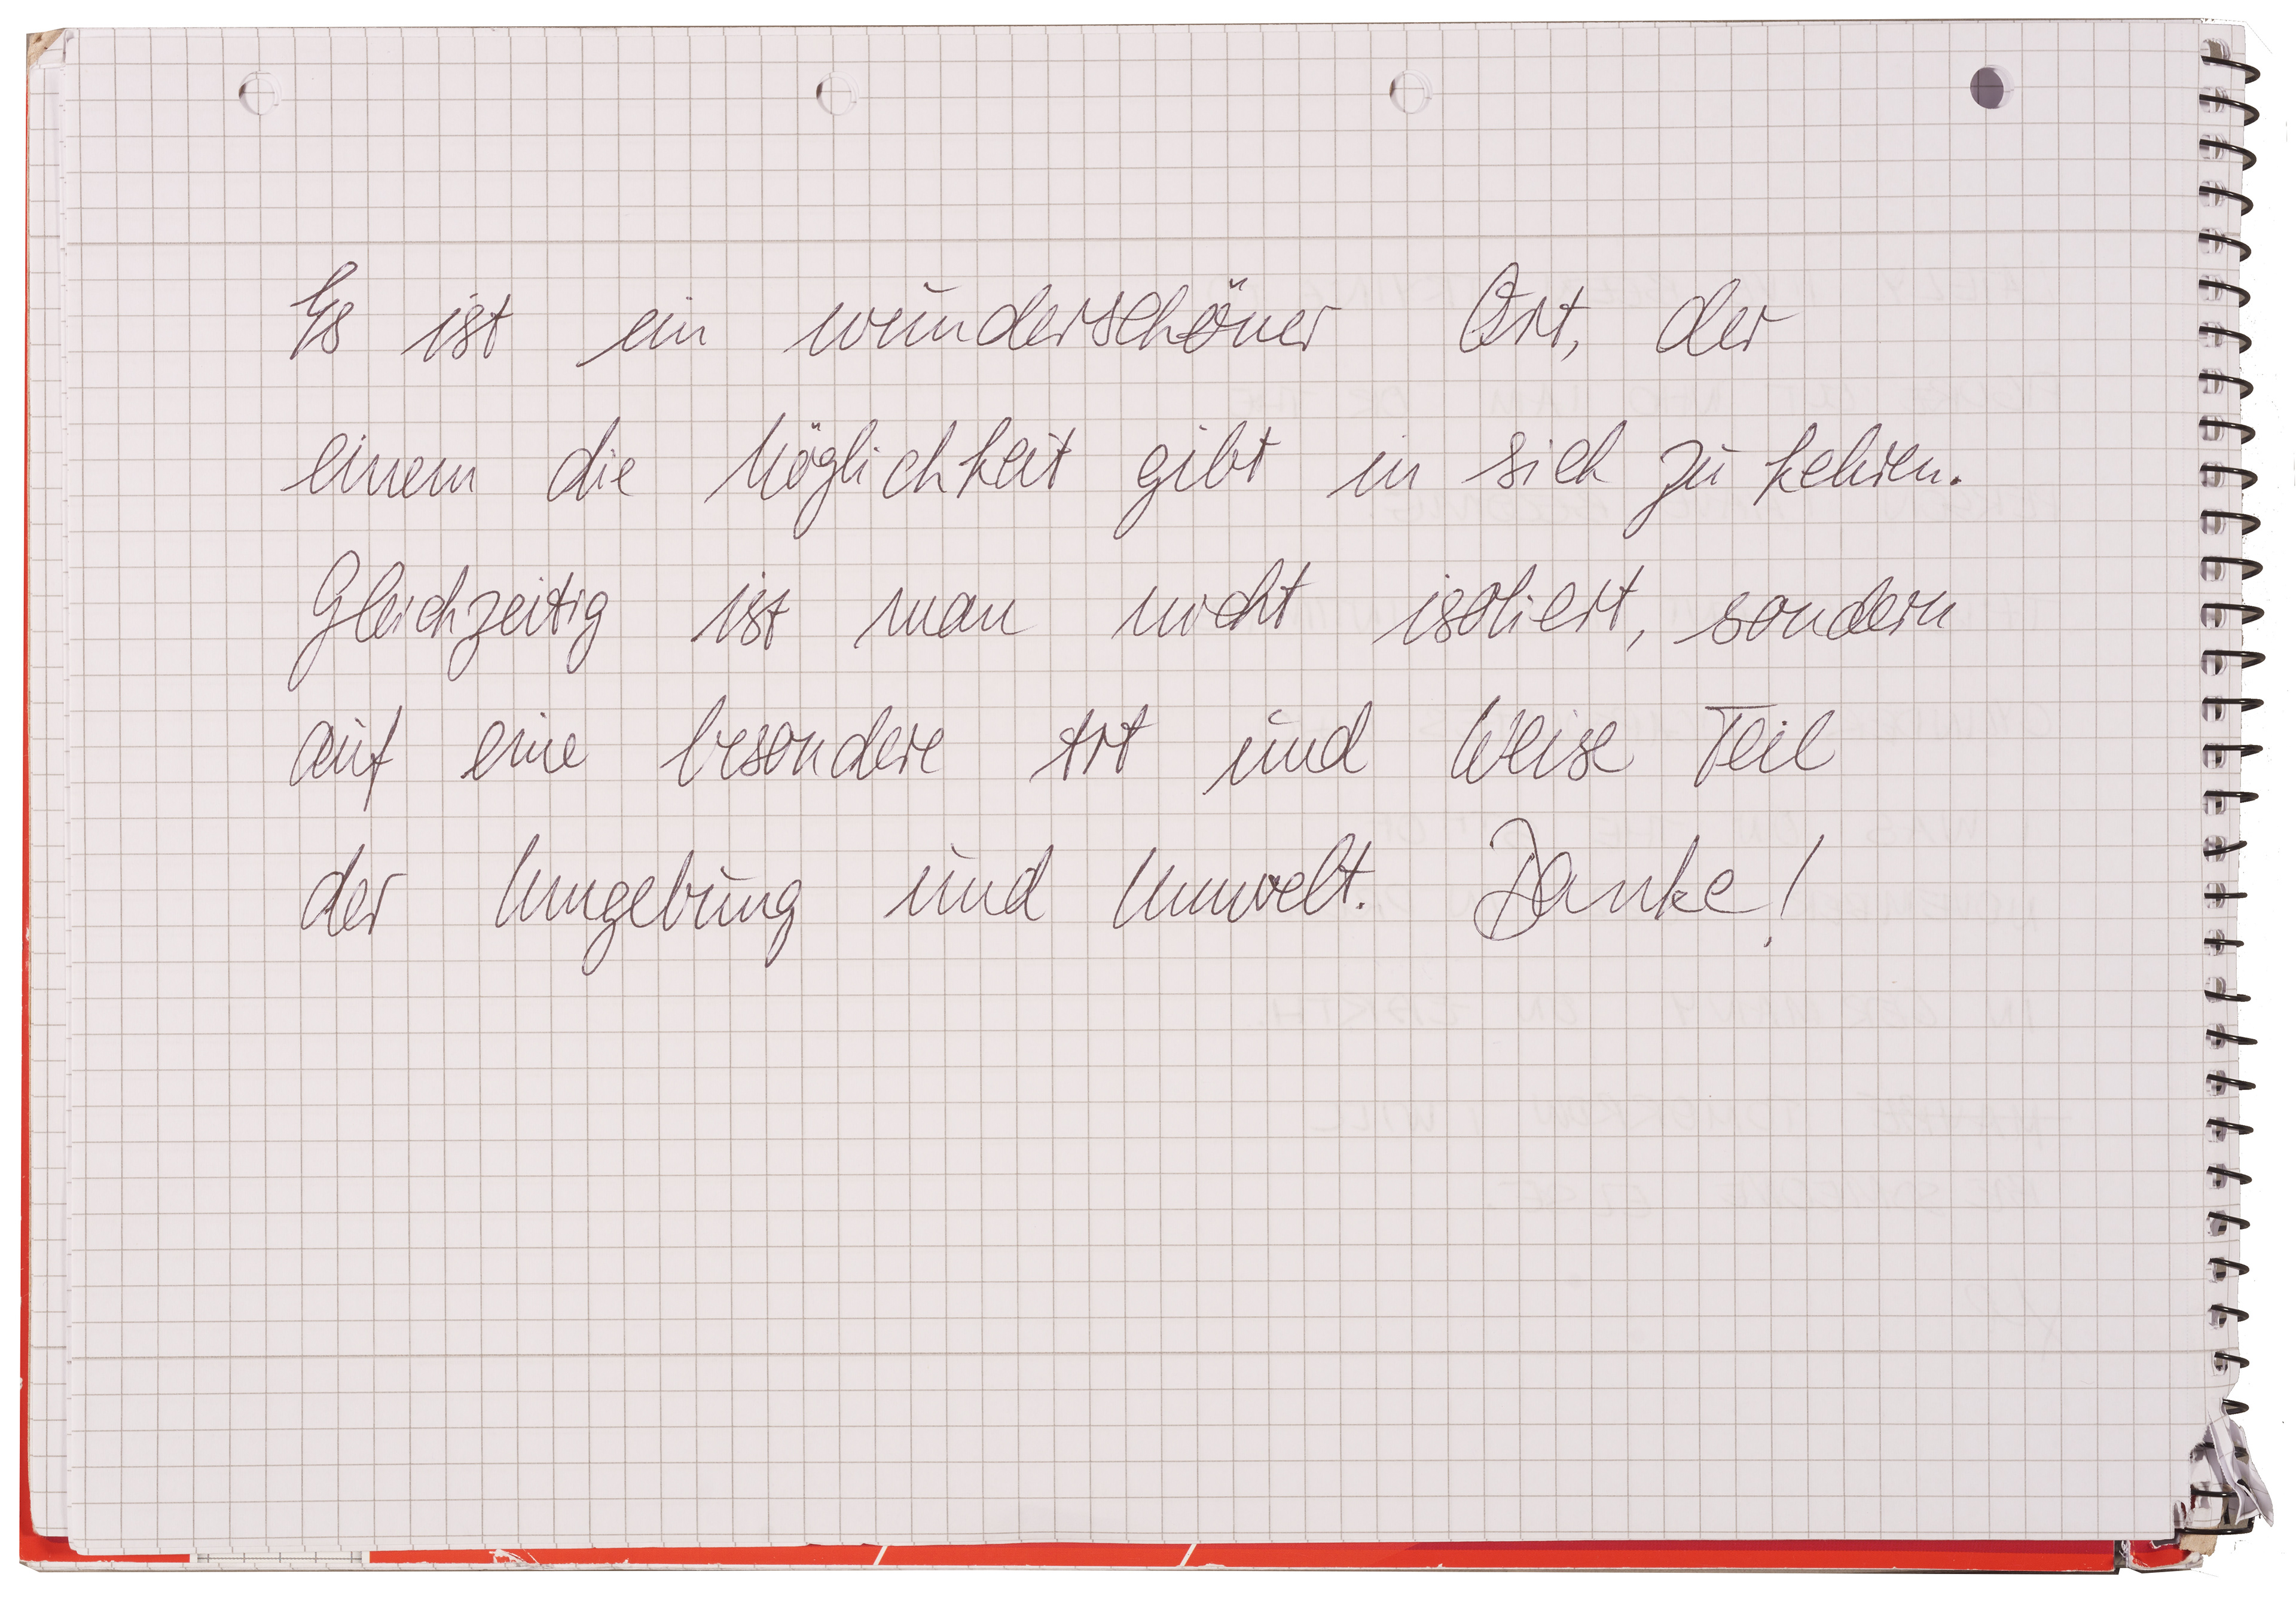 Es ist ein wunderschöner Ort, der
einem die Möglichkeit gibt in sich zu kehren.
Gleichzeitig ist man nicht isoliert, sondern
auf eine besondere Art und Weise Teil
der Umgebung und Umwelt. Danke!